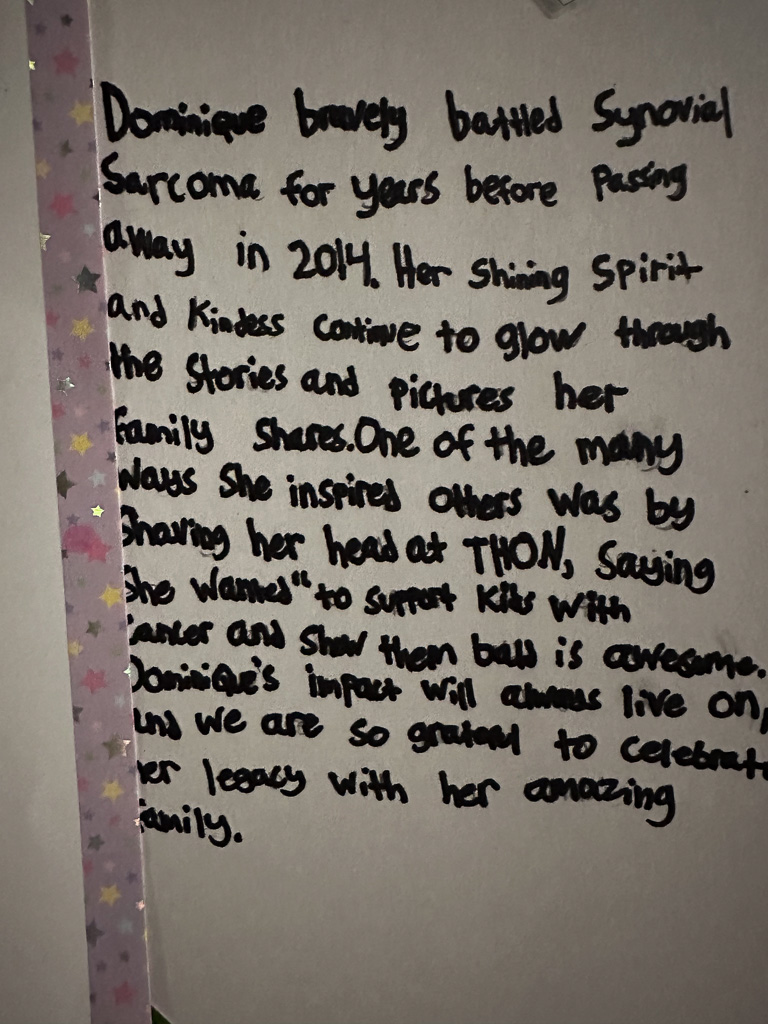 Dominique bravely battled Synovial
Sarcoma for years before Passing
away in 2014. Her Shining Spirit
and Kindess continue to glow through
the Stories and pictures her
family shares. One of the many
ways She inspired others was by
Shaving her head at THON, Saying
She wanted "to support Kids with
cancer and show them bald is awesome.
Dominique's impact will always live on,
and we are so grateful to celebrate
her legacy with her amazing
family.